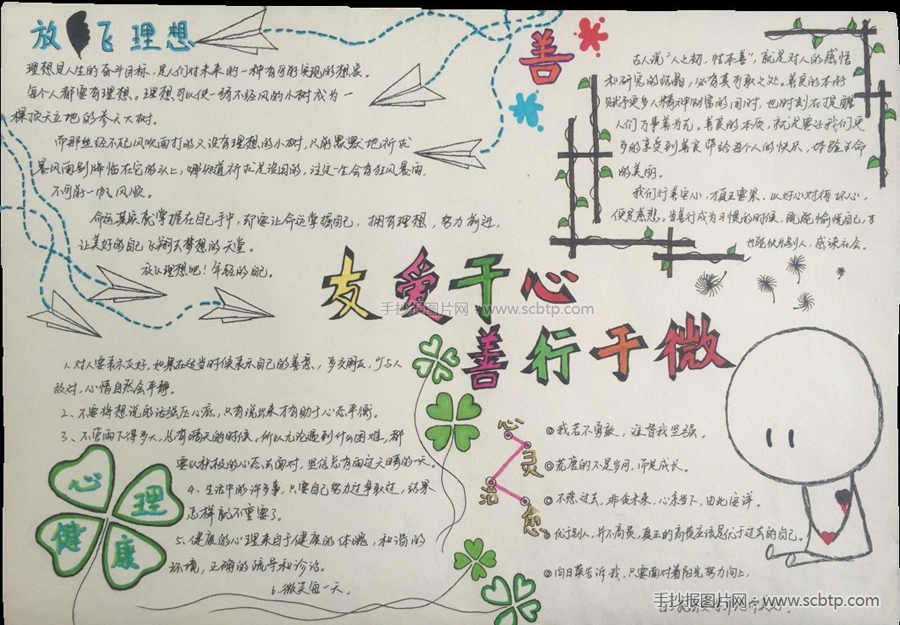 放飞理想
理想是人生的奋斗目标，是人们对未来的一种有可能实现的想象。
每个人都要有理想。理想可以使一颗不经风的小树成为一
棵顶天立地的参天大树。
而那些经不起风吹雨打的又没有理想的小树，只能默默地祈求
暴风雨别降临在它的头上，哪知道祈求是没用的，注定一生会有狂风暴雨，
不可能一帆风顺。
命运其实就掌握在自己手中，却要让命运掌握自己，拥有理想，努力前进，
让美好的自己飞翔于梦想的天堂。
放飞理想吧！年轻的自己。
善
古人说"人之初，性本善"，就是对人的感悟
和研究的结晶，必有其可取之处。善良的本质
赋予更多人精神财富的同时，也时刻在提醒
人们万事善为先。善良的本质，就是要让我们更
多的享受到善良带给每个人的快乐，体验生命
的美丽。
我们行善安心，才真正要紧。以好心对待坏心，
便是慈悲。当善行成为习惯的时候，既能愉悦自己，
也能扶片别人，感谢社会。
友爱于心
手抄报图片网：www.scbtp.com
善行于微
1、对人要表示友好。如果在适当时候表示自己的善意，多交朋友，少与人
敌对，心情自然会平静。
2、不要将想说的话强压心底，只有说出来才有助于心态平衡。
3、不管雨下得多大，总有晴天的时候。所以无论遇到什么困难，都
要以积极的心态去面对，坚信总有雨过天晴的一天。
4、生活中的许多事，只要自己努力过争取过，结果
怎样就不重要了。
5、健康的心理来自于健康的体魄，和谐的
环境，正确的疏导和诊治。
6、微笑每一天。
心理健康
心灵治愈
①我若不勇敢，谁替我坚强。
②荒废的不是岁月，而是成长。
③不恋过去，非促未来，心系当下，由此安详。
④优于别人，并不高贵，真正的高贵应该是优于过去的自己。
⑤向日葵告诉我，只要面对着阳光努力向上，
手抄报图片网：www.scbtp.com